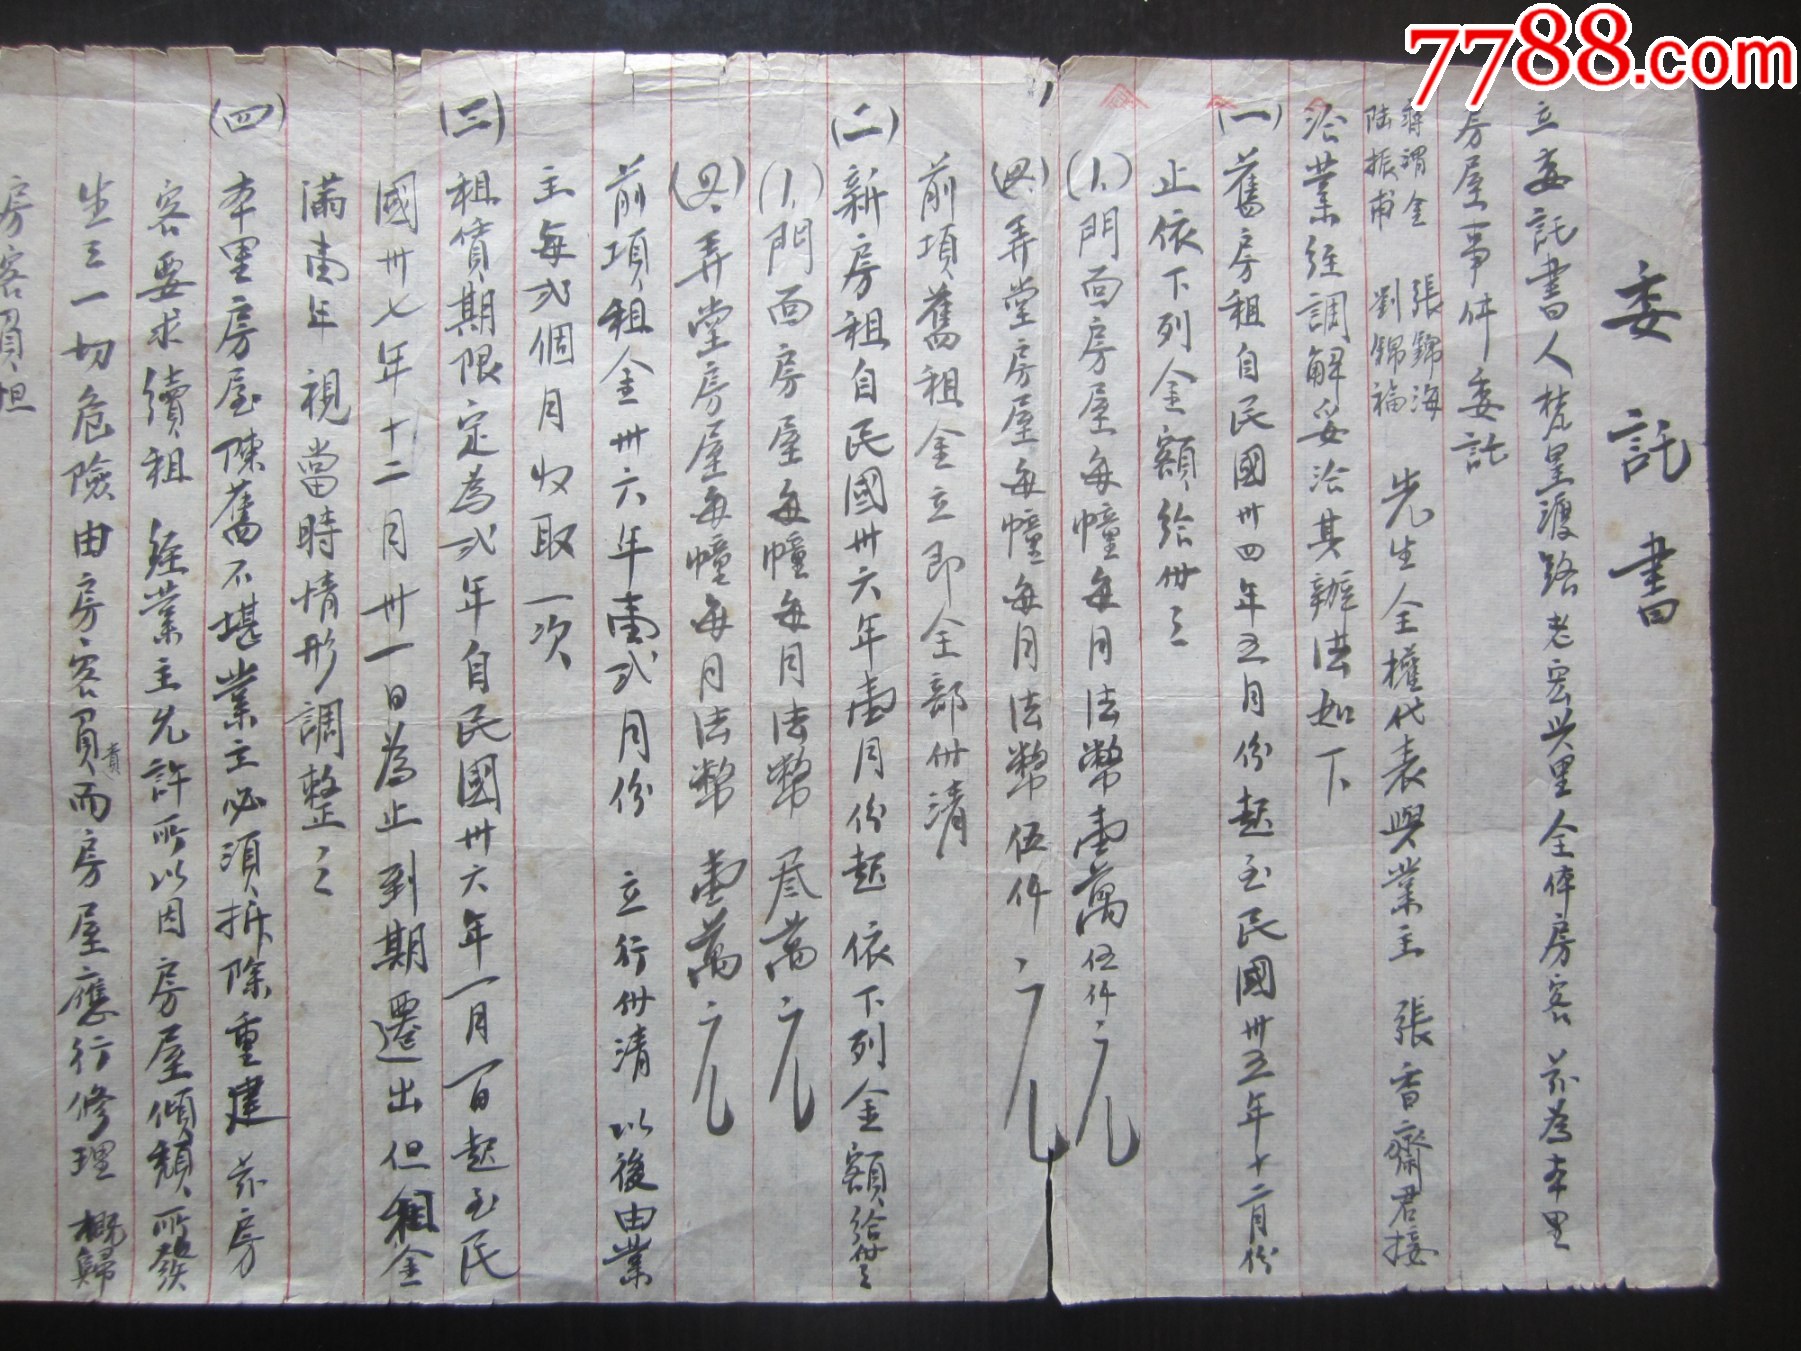 7788.com
委託書
立委託書人梵皇渡路老宏興里全体房客 茲為本里
房屋一事件委託
蔣渭金 張錦海
陸振甫 劉錦福
先生全權代表與業主 張香齋君接
洽業經調解妥洽其辦法如下
(一)舊房租自民國卅四年五月份起至民國卅五年十二月份
止依下列金額給付之
(1、門面房屋每幢每月法幣壹萬伍仟元
(2、弄堂房屋每幢每月法幣伍仟元
前項舊租金立即全部付清
(二)新房租自民國卅六年壹月份起 依下列金額給付之
(1、門面房屋每幢每月法幣叁萬元
(2、弄堂房屋每幢每月法幣 壹萬元
前項租金卅六年壹弍月份 立行付清 以後由業
主每弍個月收取一次
(三)租賃期限定為弍年自民國卅六年一月一日起至民
國卅七年十二月卅一日為止到期遷出但租金
滿壹年視當時情形調整之
(四)本里房屋陳舊不堪業主必須拆除重建 茲房
客要求續租 經業主允許所以因房屋傾頹所發
生之一切危險由房客負責而房屋應行修理 概歸
房客負担